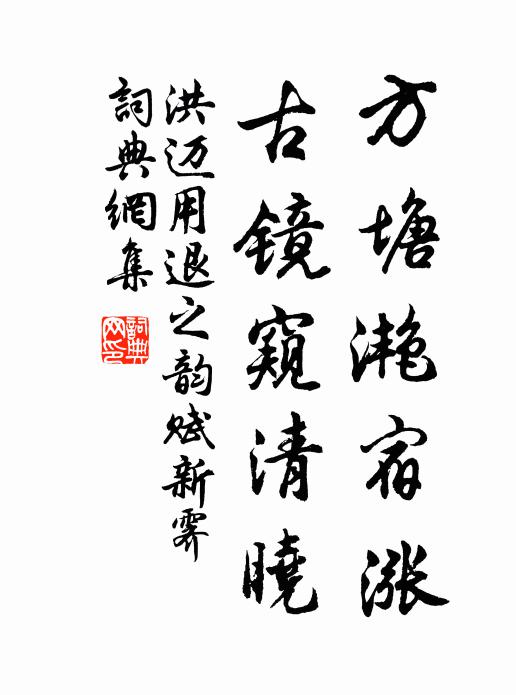 方塘滟宿涨
古镜窥清晓
洪迈用退之韵赋新霁
詞典網集
詞典網印